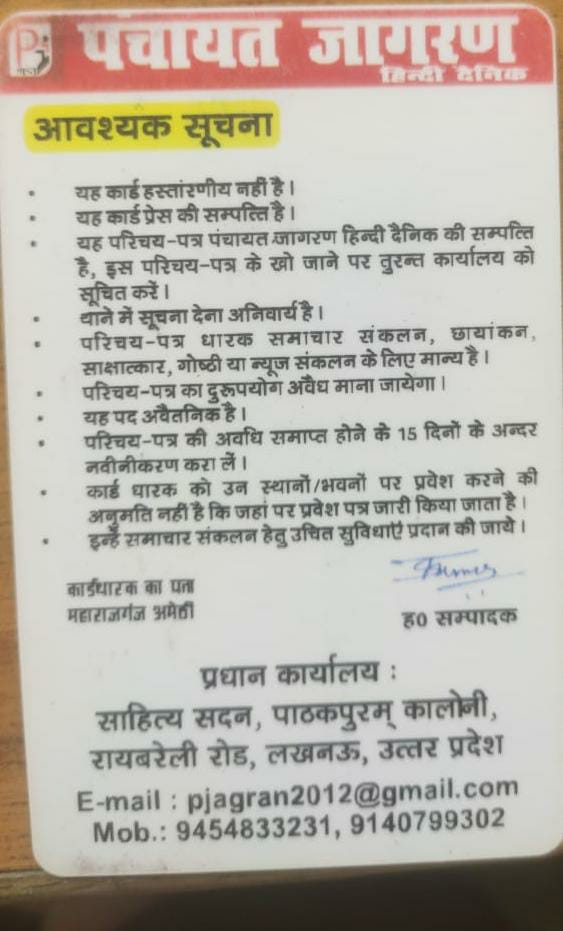 पंचायत जागरण
हिन्दी दैनिक
आवश्यक सूचना
• यह कार्ड हस्तांरणीय नहीं है।
• यह कार्ड प्रेस की सम्पत्ति है।
• यह परिचय-पत्र पंचायत जागरण हिन्दी दैनिक की सम्पत्ति
है, इस परिचय-पत्र के खो जाने पर तुरन्त कार्यालय को
सूचित करें।
• थाने में सूचना देना अनिवार्य है।
• परिचय-पत्र धारक समाचार संकलन, छायांकन,
साक्षात्कार, गोष्ठी या न्यूज संकलन के लिए मान्य है।
• परिचय-पत्र का दुरूपयोग अवैध माना जायेगा।
• यह पद अवैतनिक है।
• परिचय-पत्र की अवधि समाप्त होने के 15 दिनों के अन्दर
नवीनीकरण करा लें।
• कार्ड धारक को उन स्थानों/भवनों पर प्रवेश करने की
अनुमति नहीं है कि जहां पर प्रवेश पत्र जारी किया जाता है।
• इन्हें समाचार संकलन हेतु उचित सुविधाएं प्रदान की जाये।
कार्डधारक का पता
महाराजगंज अमेठी
ह0 सम्पादक
प्रधान कार्यालय :
साहित्य सदन, पाठकपुरम् कालोनी,
रायबरेली रोड, लखनऊ, उत्तर प्रदेश
E-mail : pjagran2012@gmail.com
Mob.: 9454833231, 9140799302